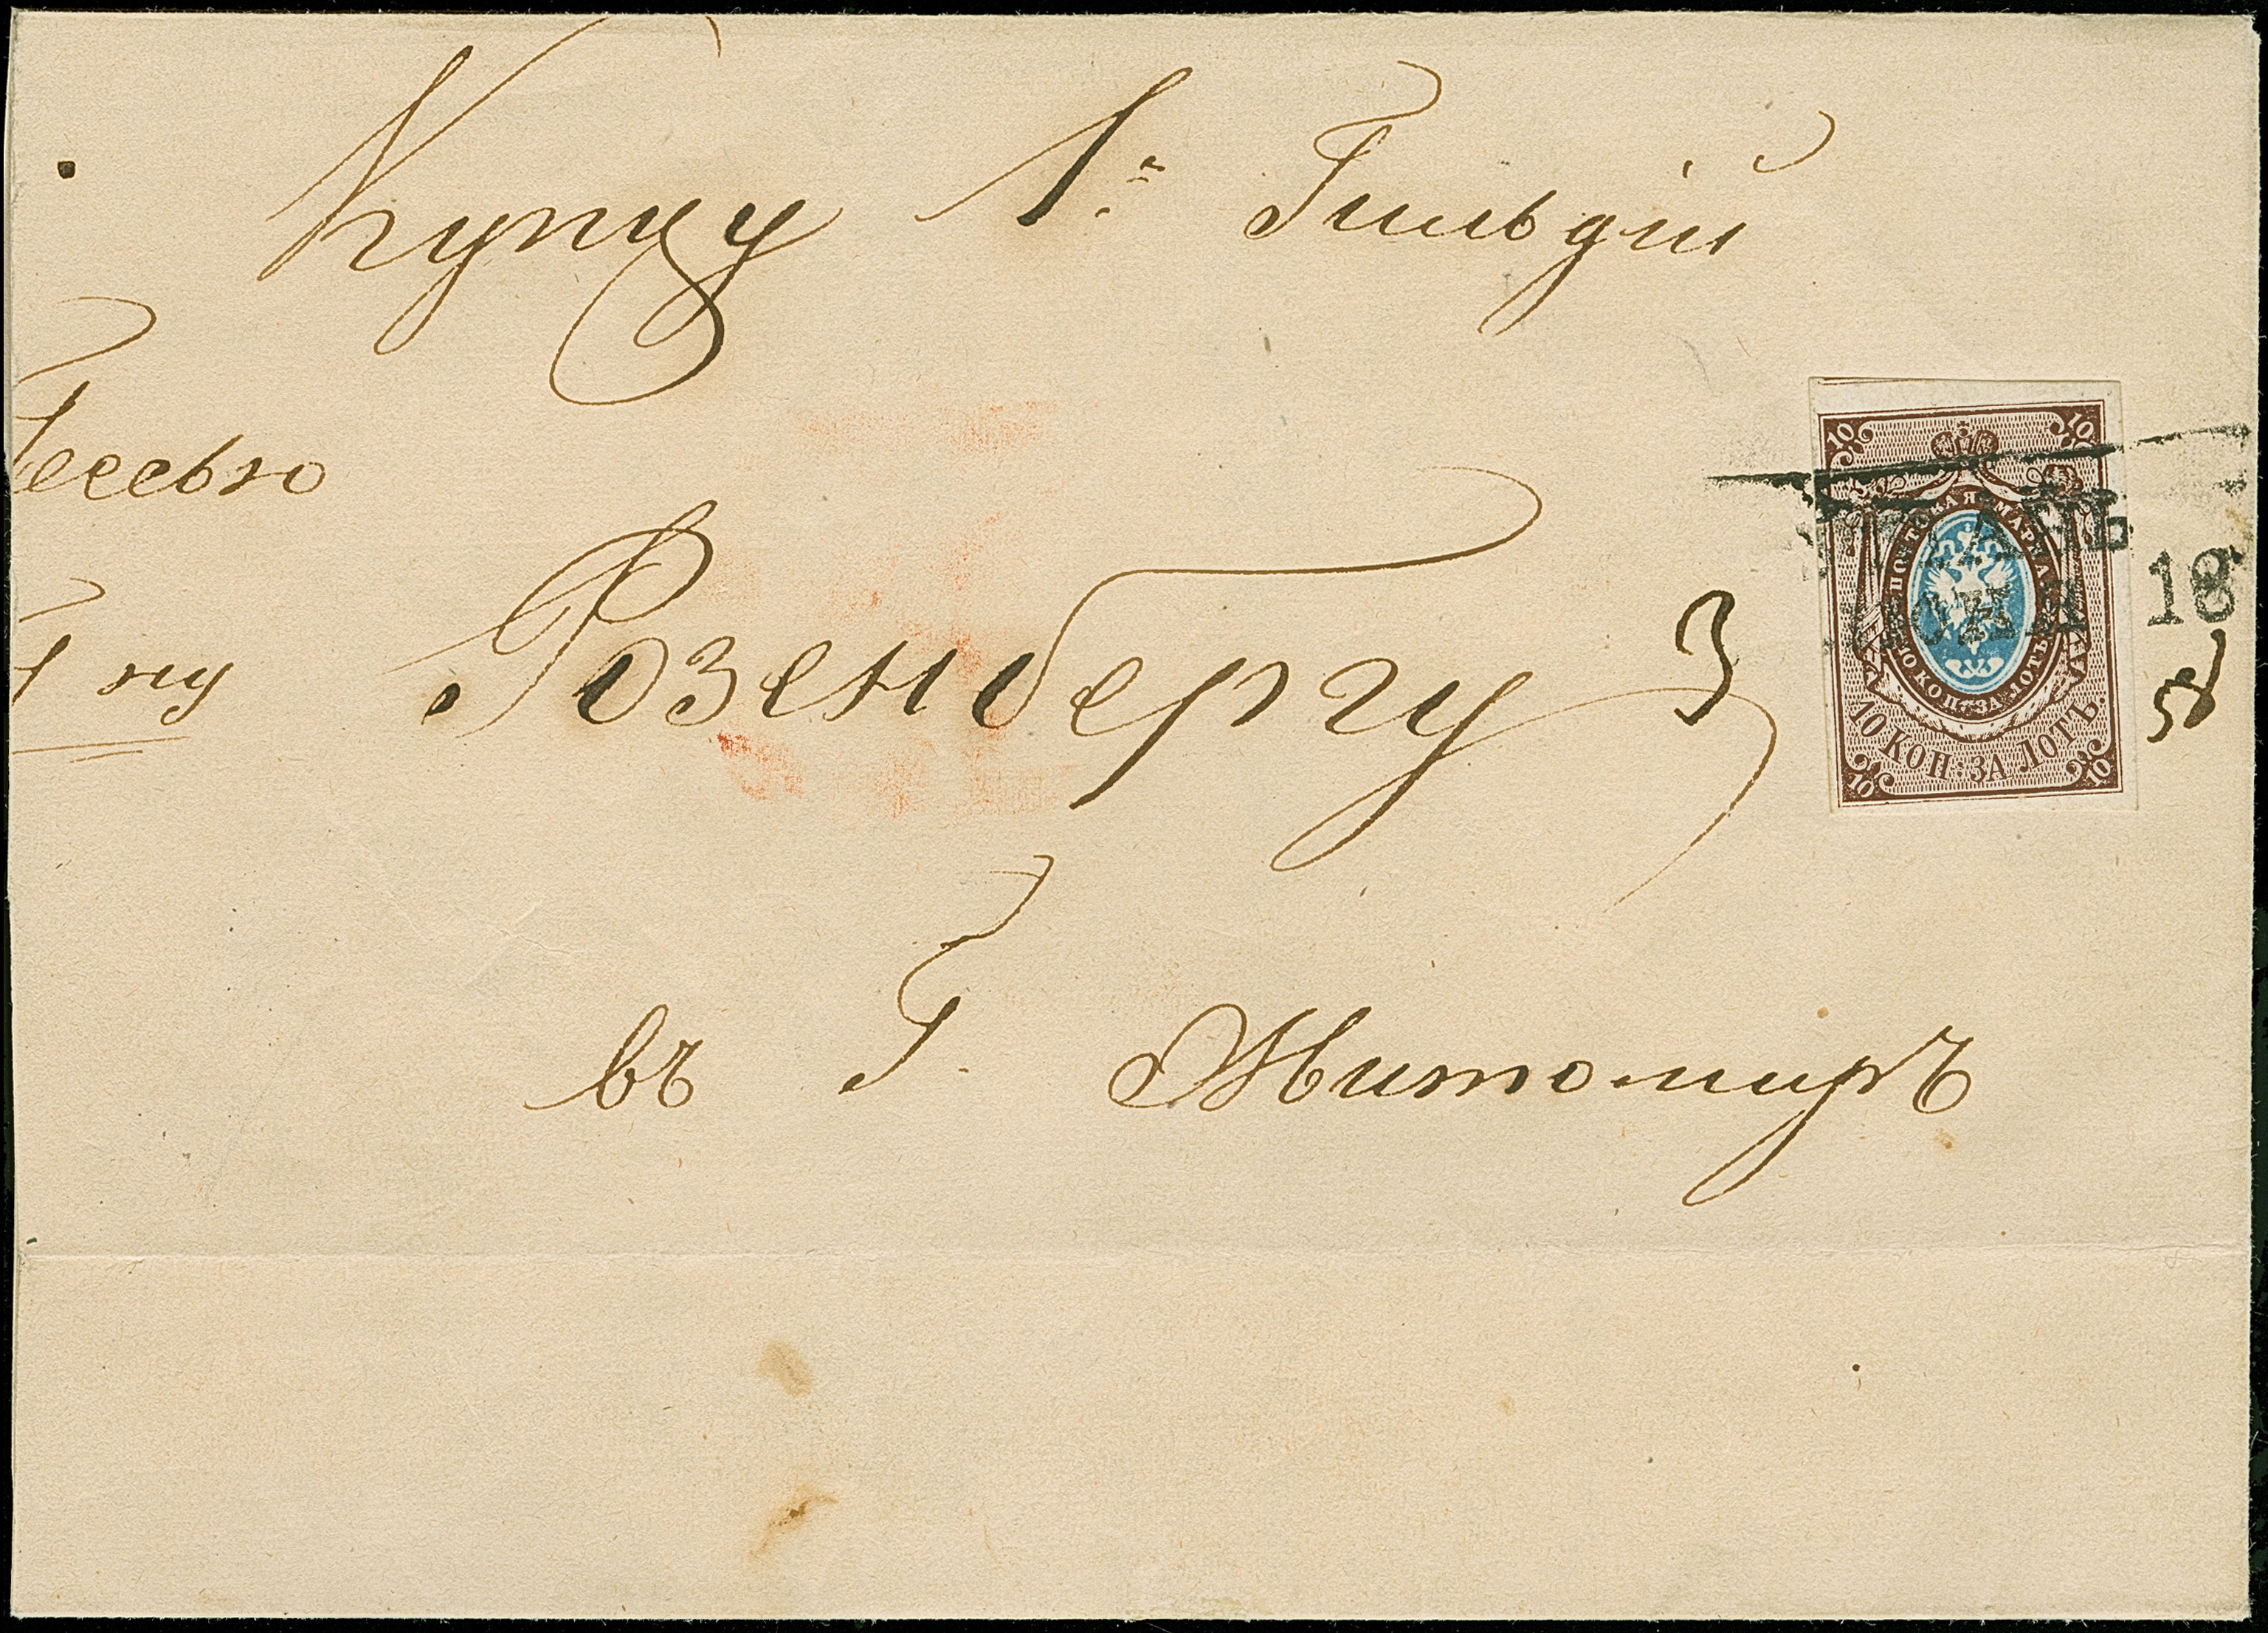 Купцу 1= Гильдій
Гессью
Г ну
Розенбергу
въ Г. Житомиръ
3
10 10
ПОЧТОВАЯ МАРКА
10 КОП. ЗА ЛОТЪ
10 КОП: ЗА ЛОТЪ.
10 10
18
58